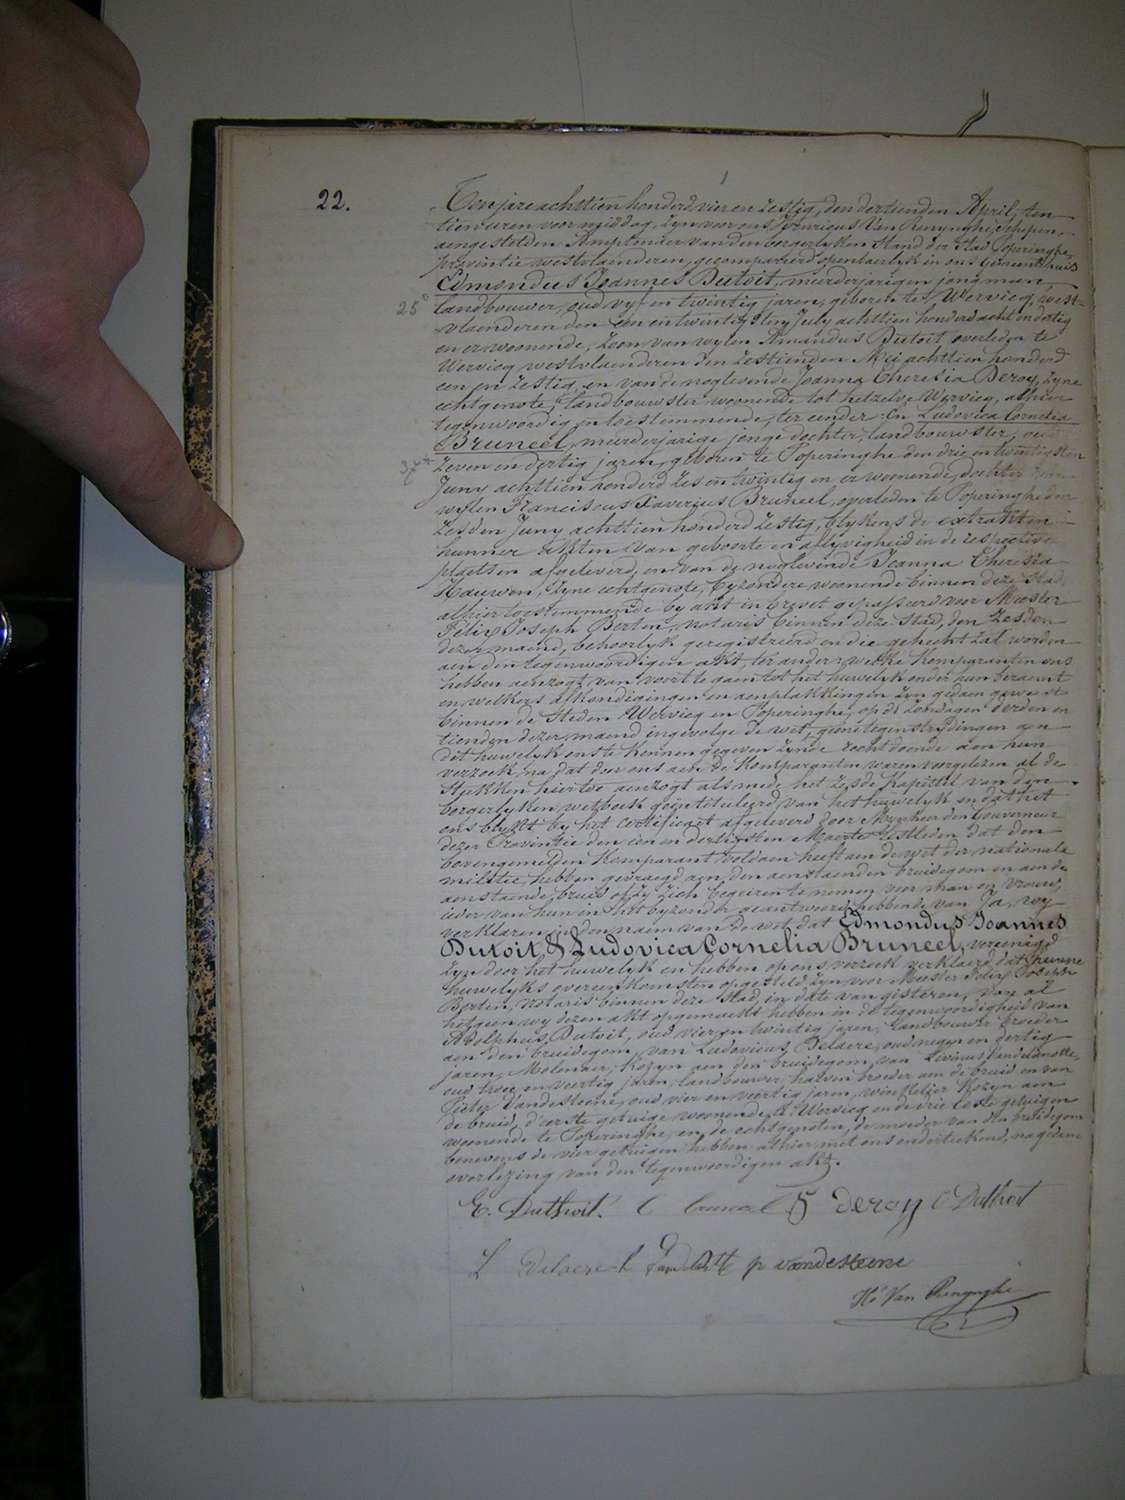 22.
Ten jare achttien honderd vier en zestig, den dertienden April, ten
tien uren voormiddag, zyn voor ons Henricus Van Renynghe, Schepen,
aengestelden Amptenier van den borgerlyken Stand der Stad Poperinghe,
provintie westvlaenderen, gecompareerd openbaerlyk in ons Gemeentehuis
Edmondus Joannes Dutoit, meerderjarigen jongman,
25
landbouwer, oud vyf en twintig jaren, geboren te Wervicq, west-
vlaenderen den een en twintigsten July achttien honderd acht en dertig
en er woonende, zoon van wylen Amandus Dutoit overleden te
Wervicq westvlaenderen den zestienden Mei achttien honderd
een en zestig, en van de noglevende Joanna Theresia Deroy, zyne
echtgenote, landbouwster woonende tot hetzelve Wervicq, alhier
tegenwoordig en toestemmende, ter eender: En Ludovica Cornelia
Bruneel, meerderjarige jonge dochter, landbouwster, oud
zeven en dertig jaren, geboren te Poperinghe den drie en twintigsten
Juny achttien honderd zes en twintig en er woonende, dochter van
wylen Franciscus Xaverius Bruneel, overleden te Poperinghe den
zesden Juny achttien honderd zestig, blykens de extrakten
hunner akten van geboorte en aflyvigheid in de respective
plaetsen afgeleverd, en van de noglevende Joanna Theresia
zyne echtgenote, byzondere woonende binnen deze Stad,
alhier toestemmende by akt in brevet gepasseerd voor Meester
Felix Joseph Berten, notaris binnen deze Stad, den zesden
dezer maend, behoorlyk geregistreerd en die gehecht zal worden
aen den tegenwoordigen akt, ter andere, welke komparanten ons
hebben aenzogt van voort te gaen tot het huwelyk onder hun beraemt
en welkers afkondigingen en aenplakkingen zyn gedaen geweest
binnen de Steden Wervicq en Poperinghe, op de zondagen derden en
tienden dezer maend ingevolge de wet, geene tegenstrydingen aen
dit huwelyk ons te kennen gegeven zynde recht doende aen hun
verzoek, na dat door ons aen de komparanten waren voorgelezen al de
Stukken hiertoe aenzogt als mede het zesde Kapittel van den
borgerlyken wetboek geintituleerd van het huwelyk en dat het
ons blykt by het certificaet afgeleverd door Mynheer den Gouverneur
dezer Provintie den een en dertigsten Maerte lestleden dat den
bovengemelden komparant voldaen heeft aen de wet der nationale
militie, hebben gevraegd aen den aenstaenden bruidegom en aen de
aenstaende bruid of zy zich begeiren te nemen voor man en vrouw,
ieder van hun en het byzonder geantwoord hebbende van Ja, wy
verklaren in den naem van de wet dat Edmondus Joannes
Dutoit & Ludovica Cornelia Bruneel, vereenigd
zyn door het huwelyk en hebben op ons verzoek verklaerd dat hunne
huwelyks overeenkomsten opgesteld zyn voor Meester Felix Joseph
Berten, notaris binnen deze Stad, in date van gisteren, van al
hetgeen wy dezen akt opgemaekt hebben in de tegenwoordigheid van
Adolphus Dutoit, oud vier en twintig jaren, landbouwer broeder
aen den bruidegom, van Ludovicus Delaere, oud negen en dertig
jaren, Molenaer, kozyn aen den bruidegom, van Livinus Vandelanotte,
oud twee en veertig jaren, landbouwer, halven broeder aen de bruid en van
Pieter Vandesteene, oud vier en veertig jaren, winkelier kozyn aen
de bruid, d'eerste getuige woonende te Wervicq en de drie leste getuigen
woonende te Poperinghe, en de echtgenoten, de moeder van den bruidegom
benevens de vier getuigen hebben alhier met ons onderteekend, na gedane
overlezing van den tegenwoordigen akt.
E. Duthoit. L bruneel deroy Duthoit
L Delaere p vandesteene
Hri Van Renynghe